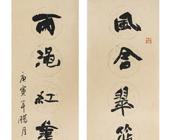 風含翠篠
雨浥紅蕖
庚寅年腊月